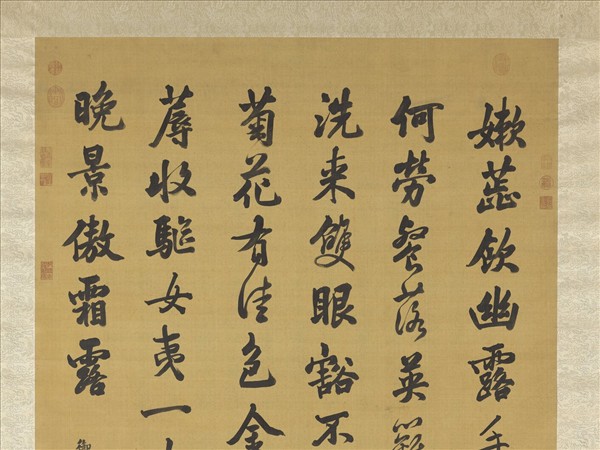 嫩蕊飲幽露
何勞餐落英
洗来雙眼豁不
菊花有佳色
蓐收驅女夷一
晚景傲霜露
御